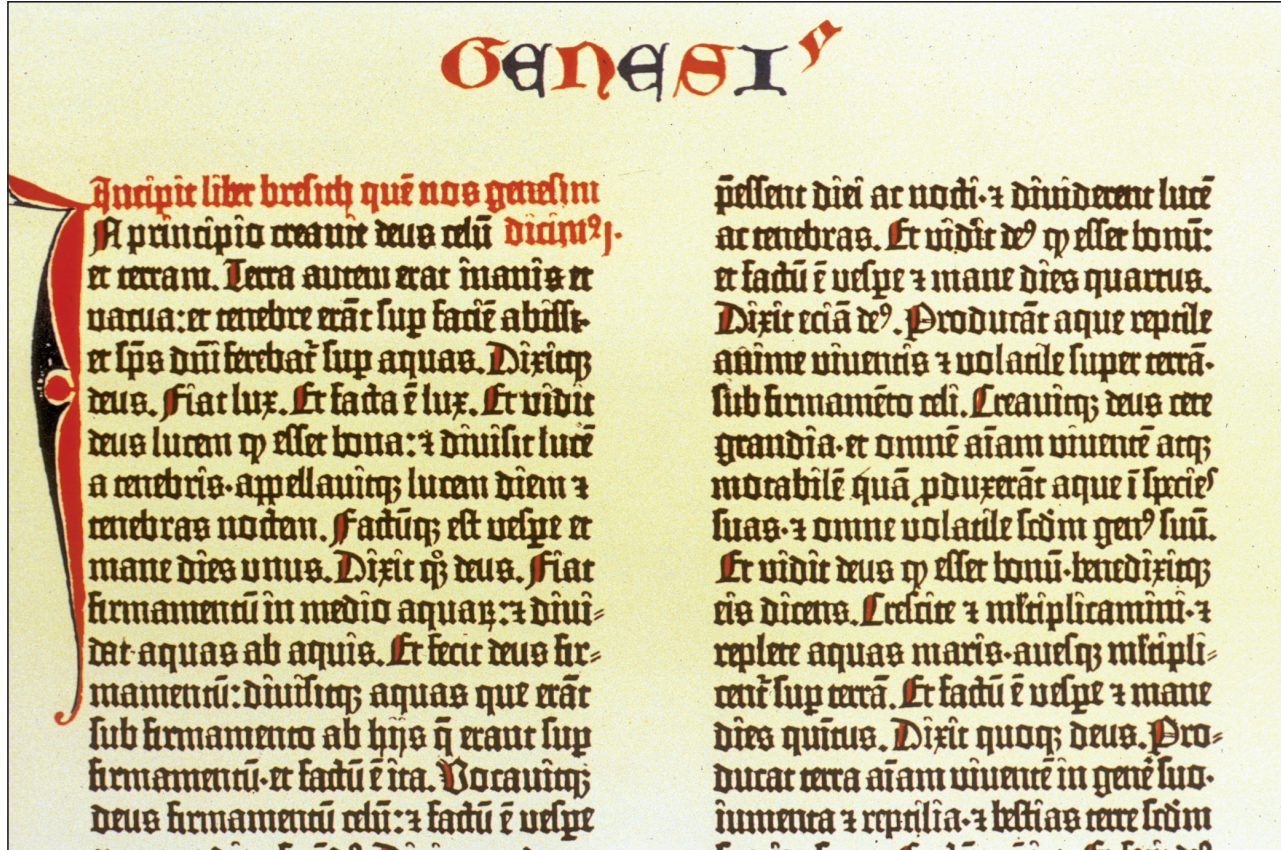 GENESIS
Incipit liber bresith quē nos genesim
dicimꝰ.
In principio creauit deus celū
et terram. Terra autem erat inanis et
vacua: et tenebre erāt suꝑ faciē abissi·
et sp̄s dn̄i ferebat᷑ suꝑ aquas. Dixitqꝫ
deus. Fiat lux. Et facta ē lux. Et vidit
deus lucem ꝙ esset bona: ⁊ diuisit lucē
a tenebris· aꝑꝑellauitqꝫ lucem diem ⁊
tenebras noctem. Factūqꝫ est vesꝑe et
mane dies vnus. Dixit qꝫ deus. Fiat
firmamentū in medio aquaꝝ: ⁊ diui⸗
dat aquas ab aquis. Et fecit deus fir⸗
mamentū: diuisitqꝫ aquas que erāt
sub firmamento ab hijs q̄ erant suꝑ
firmamentū· et factū ē ita. Vocauitqꝫ
deus firmamentū celū: ⁊ factū ē vesꝑe
p̄essent diei ac nocti· ⁊ diuiderent lucē
ac tenebras. Et vidit deꝰ ꝙ esset bonū:
et factū ē vesꝑe ⁊ mane dies quartus.
Dixit eciā deꝰ. Producāt aque reptile
anime viuentis ⁊ volatile super terrā·
sub firmamēto celi. Creauitqꝫ deus cete
grandia· et omnē aīam viuentē atqꝫ
motabilē quā ꝓduxerāt aque ī species
suas· ⁊ omne volatile scdm genꝰ suū.
Et vidit deus ꝙ esset bonū· benedixitqꝫ
eis dicens. Crescite ⁊ mltiplicamini· ⁊
replete aquas maris· auesqꝫ mltipli⸗
cent᷑ suꝑ terrā. Et factū ē vesꝑe ⁊ mane
dies quītus. Dixit quoqꝫ deus. Pro⸗
ducat terra aīam viuentē in gene᷑ suo·
iumenta ⁊ reptilia· ⁊ bestias terre scdm